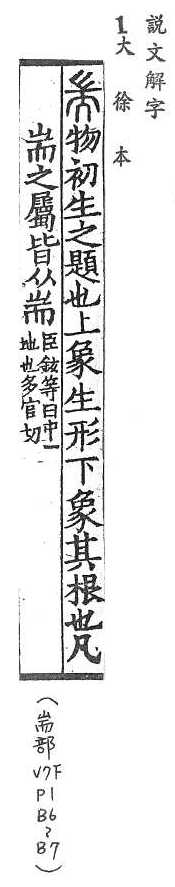 説文解字
1大徐本
耑物初生之題也上象生形下象其根也凡
耑之屬皆从耑臣鉉等曰中一
地也多官切
(耑部
V7下
P1
B6
~
B7)